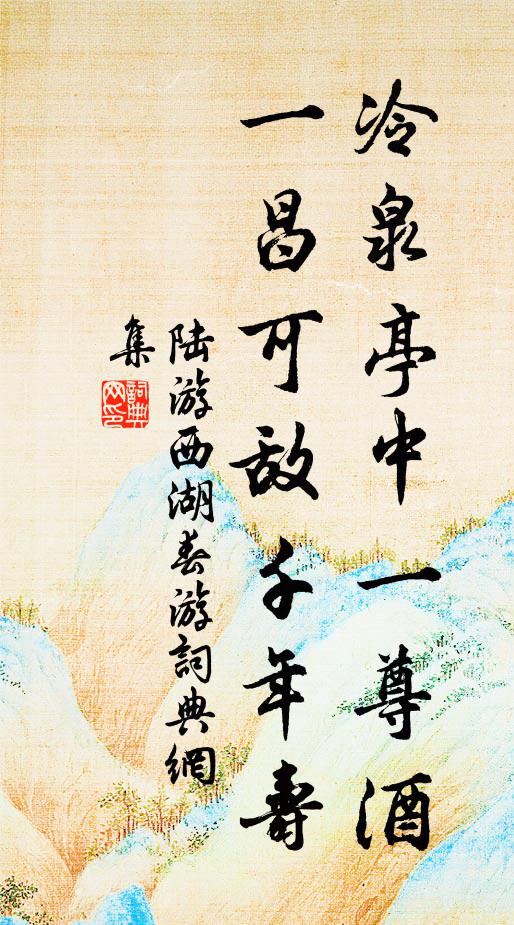 冷泉亭中一尊酒
一昌可敌千年壽
陆游西湖春游詞典網
集
詞典
网印